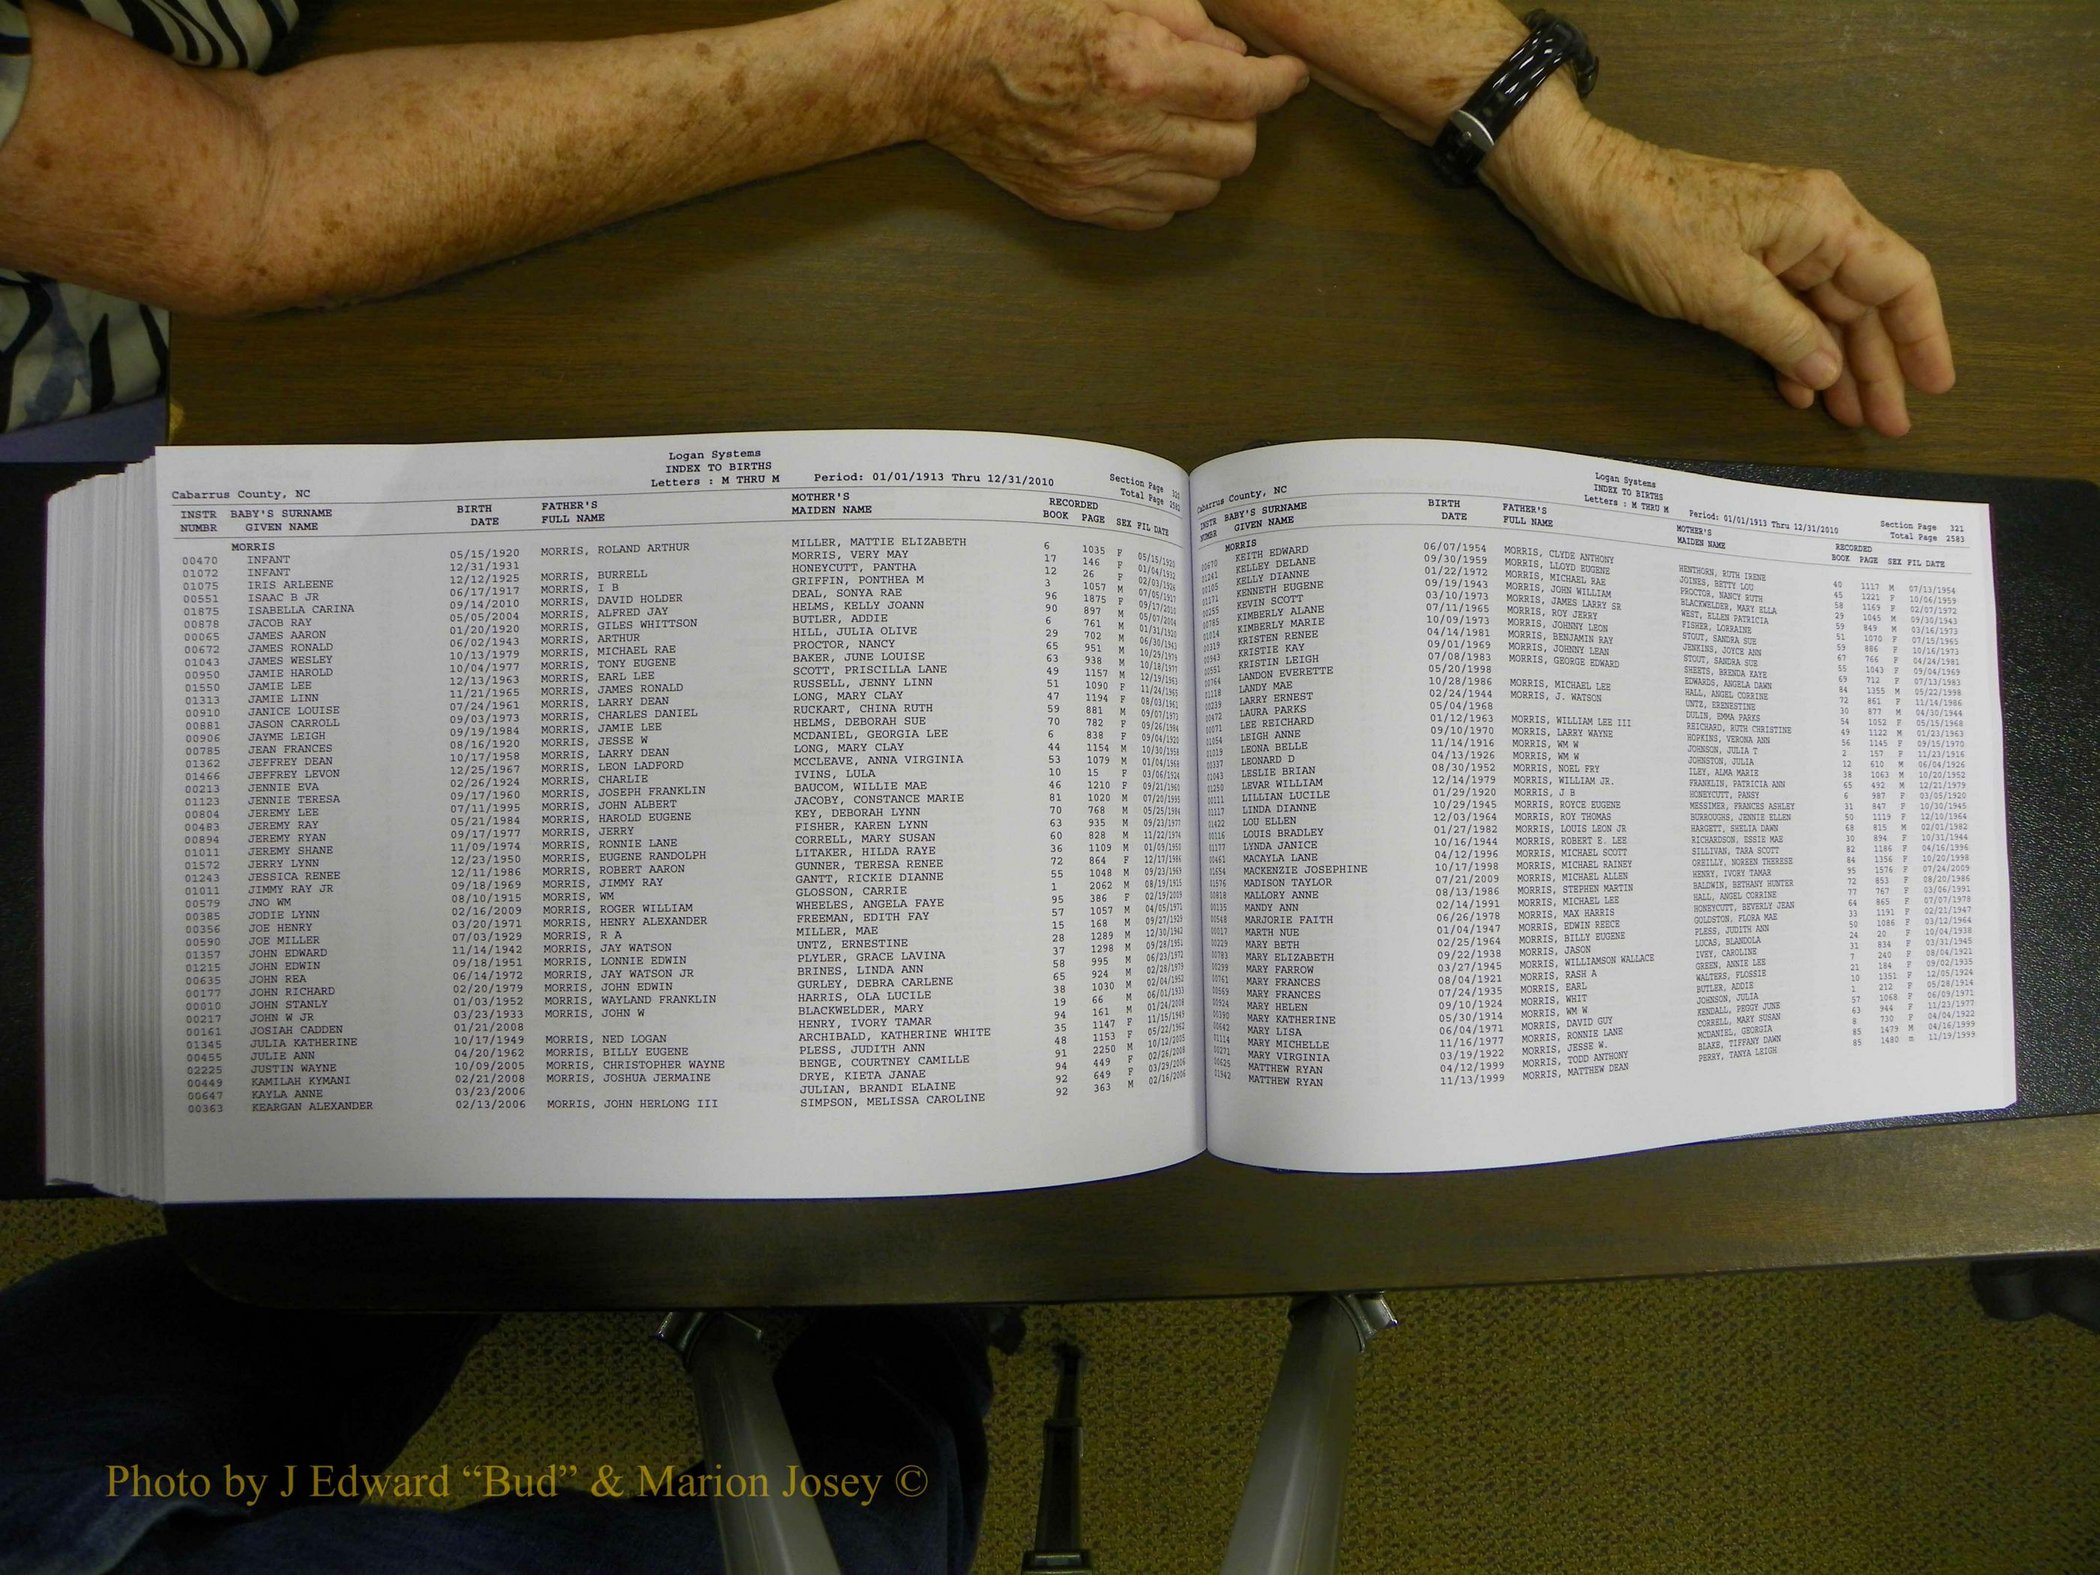 Logan Systems
INDEX TO BIRTHS
Letters : M THRU M Period: 01/01/1913 Thru 12/31/2010
Cabarrus County, NC Section Page 320
Total Page 2582
INSTR BABY'S SURNAME BIRTH FATHER'S MOTHER'S RECORDED
NUMBR GIVEN NAME DATE FULL NAME MAIDEN NAME BOOK PAGE SEX FIL DATE
MORRIS
00470 INFANT 05/15/1920 MORRIS, ROLAND ARTHUR MILLER, MATTIE ELIZABETH 6 1035 F 05/15/1920
01072 INFANT 12/31/1931 MORRIS, VERY MAY 17 146 F 01/04/1932
01075 IRIS ARLEENE 12/12/1925 MORRIS, BURRELL HONEYCUTT, PANTHA 12 26 F 02/03/1926
00551 ISAAC B JR 06/17/1917 MORRIS, I B GRIFFIN, PONTHEA M 3 1057 M 07/05/1917
01875 ISABELLA CARINA 09/14/2010 MORRIS, DAVID HOLDER DEAL, SONYA RAE 96 1875 F 09/17/2010
00878 JACOB RAY 05/05/2004 MORRIS, ALFRED JAY HELMS, KELLY JOANN 90 897 M 05/07/2004
00065 JAMES AARON 01/20/1920 MORRIS, GILES WHITTSON BUTLER, ADDIE 6 761 M 01/31/1920
00672 JAMES RONALD 06/02/1943 MORRIS, ARTHUR HILL, JULIA OLIVE 29 702 M 06/30/1943
01043 JAMES WESLEY 10/13/1979 MORRIS, MICHAEL RAE PROCTOR, NANCY 65 951 M 10/29/1979
00950 JAMIE HAROLD 10/04/1977 MORRIS, TONY EUGENE BAKER, JUNE LOUISE 63 938 M 10/18/1977
01550 JAMIE LEE 12/13/1963 MORRIS, EARL LEE SCOTT, PRISCILLA LANE 49 1157 M 12/19/1963
01313 JAMIE LINN 11/21/1965 MORRIS, JAMES RONALD RUSSELL, JENNY LINN 51 1090 F 11/24/1965
00910 JANICE LOUISE 07/24/1961 MORRIS, LARRY DEAN LONG, MARY CLAY 47 1194 F 08/03/1961
00881 JASON CARROLL 09/03/1973 MORRIS, CHARLES DANIEL RUCKART, CHINA RUTH 59 881 M 09/07/1973
00906 JAYME LEIGH 09/19/1984 MORRIS, JAMIE LEE HELMS, DEBORAH SUE 70 782 F 09/26/1984
00785 JEAN FRANCES 08/16/1920 MORRIS, JESSE W MCDANIEL, GEORGIA LEE 6 838 F 09/04/1920
01362 JEFFREY DEAN 10/17/1958 MORRIS, LARRY DEAN LONG, MARY CLAY 44 1154 M 10/30/1958
01466 JEFFREY LEVON 12/25/1967 MORRIS, LEON LADFORD MCCLEAVE, ANNA VIRGINIA 53 1079 M 01/04/1968
00213 JENNIE EVA 02/26/1924 MORRIS, CHARLIE IVINS, LULA 10 15 F 03/06/1924
01123 JENNIE TERESA 09/17/1960 MORRIS, JOSEPH FRANKLIN BAUCOM, WILLIE MAE 46 1210 F 09/21/1960
00804 JEREMY LEE 07/11/1995 MORRIS, JOHN ALBERT JACOBY, CONSTANCE MARIE 81 1020 M 07/20/1995
00483 JEREMY RAY 05/21/1984 MORRIS, HAROLD EUGENE KEY, DEBORAH LYNN 70 768 M 05/25/1984
00894 JEREMY RYAN 09/17/1977 MORRIS, JERRY FISHER, KAREN LYNN 63 935 M 09/23/1977
01011 JEREMY SHANE 11/09/1974 MORRIS, RONNIE LANE CORRELL, MARY SUSAN 60 828 M 11/22/1974
01572 JERRY LYNN 12/23/1950 MORRIS, EUGENE RANDOLPH LITAKER, HILDA RAYE 36 1109 M 01/09/1950
01243 JESSICA RENEE 12/11/1986 MORRIS, ROBERT AARON GUNNER, TERESA RENEE 72 864 F 12/17/1986
01011 JIMMY RAY JR 09/18/1969 MORRIS, JIMMY RAY GANTT, RICKIE DIANNE 55 1048 M 09/23/1969
00579 JNO WM 08/10/1915 MORRIS, WM GLOSSON, CARRIE 1 2062 M 08/19/1915
00385 JODIE LYNN 02/16/2009 MORRIS, ROGER WILLIAM WHEELES, ANGELA FAYE 95 386 F 02/19/2009
00356 JOE HENRY 03/20/1971 MORRIS, HENRY ALEXANDER FREEMAN, EDITH FAY 57 1057 M 04/05/1971
00590 JOE MILLER 07/03/1929 MORRIS, R A MILLER, MAE 15 168 M 09/27/1929
01357 JOHN EDWARD 11/14/1942 MORRIS, JAY WATSON UNTZ, ERNESTINE 28 1289 M 12/30/1942
01215 JOHN EDWIN 09/18/1951 MORRIS, LONNIE EDWIN PLYLER, GRACE LAVINA 37 1298 M 09/28/1951
00635 JOHN REA 06/14/1972 MORRIS, JAY WATSON JR BRINES, LINDA ANN 58 995 M 06/23/1972
00177 JOHN RICHARD 02/20/1979 MORRIS, JOHN EDWIN GURLEY, DEBRA CARLENE 65 924 M 02/28/1979
00010 JOHN STANLY 01/03/1952 MORRIS, WAYLAND FRANKLIN HARRIS, OLA LUCILE 38 1030 M 02/04/1952
00217 JOHN W JR 03/23/1933 MORRIS, JOHN W BLACKWELDER, MARY 19 66 M 06/01/1933
00161 JOSIAH CADDEN 01/21/2008 HENRY, IVORY TAMAR 94 161 M 01/24/2008
01345 JULIA KATHERINE 10/17/1949 MORRIS, NED LOGAN ARCHIBALD, KATHERINE WHITE 35 1147 F 11/15/1949
00455 JULIE ANN 04/20/1962 MORRIS, BILLY EUGENE PLESS, JUDITH ANN 48 1153 F 05/22/1962
02225 JUSTIN WAYNE 10/09/2005 MORRIS, CHRISTOPHER WAYNE BENGE, COURTNEY CAMILLE 91 2250 M 10/12/2005
00449 KAMILAH KYMANI 02/21/2008 MORRIS, JOSHUA JERMAINE DRYE, KIETA JANAE 94 449 F 02/26/2008
00647 KAYLA ANNE 03/23/2006 JULIAN, BRANDI ELAINE 92 649 F 03/29/2006
00363 KEARGAN ALEXANDER 02/13/2006 MORRIS, JOHN HERLONG III SIMPSON, MELISSA CAROLINE 92 363 M 02/16/2006
Logan Systems
INDEX TO BIRTHS
Letters : M THRU M Period: 01/01/1913 Thru 12/31/2010
Cabarrus County, NC Section Page 321
Total Page 2583
INSTR BABY'S SURNAME BIRTH FATHER'S MOTHER'S RECORDED
NUMBR GIVEN NAME DATE FULL NAME MAIDEN NAME BOOK PAGE SEX FIL DATE
MORRIS
00670 KEITH EDWARD 06/07/1954 MORRIS, CLYDE ANTHONY HENTHORN, RUTH IRENE 40 1117 M 07/13/1954
01241 KELLEY DELANE 09/30/1959 MORRIS, LLOYD EUGENE JOINES, BETTY LOU 45 1221 F 10/06/1959
00105 KELLY DIANNE 01/22/1972 MORRIS, MICHAEL RAE PROCTOR, NANCY RUTH 58 1169 F 02/07/1972
01171 KENNETH EUGENE 09/19/1943 MORRIS, JOHN WILLIAM BLACKWELDER, MARY ELLA 29 1045 M 09/30/1943
00255 KEVIN SCOTT 03/10/1973 MORRIS, JAMES LARRY SR WEST, ELLEN PATRICIA 59 849 M 03/16/1973
00785 KIMBERLY ALANE 07/11/1965 MORRIS, ROY JERRY FISHER, LORRAINE 51 1070 F 07/15/1965
01014 KIMBERLY MARIE 10/09/1973 MORRIS, JOHNNY LEON STOUT, SANDRA SUE 59 886 F 10/16/1973
00319 KRISTEN RENEE 04/14/1981 MORRIS, BENJAMIN RAY JENKINS, JOYCE ANN 67 766 F 04/24/1981
00943 KRISTIE KAY 09/01/1969 MORRIS, JOHNNY LEAN STOUT, SANDRA SUE 55 1043 F 09/04/1969
00551 KRISTIN LEIGH 07/08/1983 MORRIS, GEORGE EDWARD SHEETS, BRENDA KAYE 69 712 F 07/13/1983
00764 LANDON EVERETTE 05/20/1998 EDWARDS, ANGELA DAWN 84 1355 M 05/22/1998
01118 LANDY MAE 10/28/1986 MORRIS, MICHAEL LEE HALL, ANGEL CORRINE 72 861 F 11/14/1986
00239 LARRY ERNEST 02/24/1944 MORRIS, J. WATSON UNTZ, ERENESTINE 30 877 M 04/30/1944
00472 LAURA PARKS 05/04/1968 DULIN, EMMA PARKS 54 1052 F 05/15/1968
00071 LEE REICHARD 01/12/1963 MORRIS, WILLIAM LEE III REICHARD, RUTH CHRISTINE 49 1122 M 01/23/1963
01054 LEIGH ANNE 09/10/1970 MORRIS, LARRY WAYNE HOPKINS, VERONA ANN 56 1145 F 09/15/1970
01019 LEONA BELLE 11/14/1916 MORRIS, WM W JOHNSON, JULIA T 2 157 F 11/23/1916
00337 LEONARD D 04/13/1926 MORRIS, WM W JOHNSTON, JULIA 12 610 M 06/04/1926
01043 LESLIE BRIAN 08/30/1952 MORRIS, NOEL FRY ILEY, ALMA MARIE 38 1063 M 10/20/1952
01250 LEVAR WILLIAM 12/14/1979 MORRIS, WILLIAM JR. FRANKLIN, PATRICIA ANN 65 492 M 12/21/1979
00111 LILLIAN LUCILE 01/29/1920 MORRIS, J B HONEYCUTT, PANSY 6 987 F 03/05/1920
01117 LINDA DIANNE 10/29/1945 MORRIS, ROYCE EUGENE MESSIMER, FRANCES ASHLEY 31 847 F 10/30/1945
01422 LOU ELLEN 12/03/1964 MORRIS, ROY THOMAS BURROUGHS, JENNIE ELLEN 50 1119 F 12/10/1964
00116 LOUIS BRADLEY 01/27/1982 MORRIS, LOUIS LEON JR HARGETT, SHELIA DAWN 68 815 M 02/01/1982
01177 LYNDA JANICE 10/16/1944 MORRIS, ROBERT E. LEE RICHARDSON, ESSIE MAE 30 894 F 10/31/1944
00461 MACAYLA LANE 04/12/1996 MORRIS, MICHAEL SCOTT SILLIVAN, TARA SCOTT 82 1186 F 04/16/1996
01654 MACKENZIE JOSEPHINE 10/17/1998 MORRIS, MICHAEL RAINEY OREILLY, NOREEN THERESE 84 1356 F 10/20/1998
01576 MADISON TAYLOR 07/21/2009 MORRIS, MICHAEL ALLEN HENRY, IVORY TAMAR 95 1576 F 07/24/2009
00818 MALLORY ANNE 08/13/1986 MORRIS, STEPHEN MARTIN BALDWIN, BETHANY HUNTER 72 853 F 08/20/1986
00135 MANDY ANN 02/14/1991 MORRIS, MICHAEL LEE HALL, ANGEL CORRINE 77 767 F 03/06/1991
00548 MARJORIE FAITH 06/26/1978 MORRIS, MAX HARRIS HONEYCUTT, BEVERLY JEAN 64 865 F 07/07/1978
00017 MARTH NUE 01/04/1947 MORRIS, EDWIN REECE GOLDSTON, FLORA MAE 33 1191 F 02/21/1947
00229 MARY BETH 02/25/1964 MORRIS, BILLY EUGENE PLESS, JUDITH ANN 50 1086 F 03/12/1964
00783 MARY ELIZABETH 09/22/1938 MORRIS, JASON LUCAS, BLANDOLA 24 20 F 10/04/1938
00299 MARY FARROW 03/27/1945 MORRIS, WILLIAMSON WALLACE IVEY, CAROLINE 31 834 F 03/31/1945
00761 MARY FRANCES 08/04/1921 MORRIS, RASH A GREEN, ANNIE LEE 7 240 F 08/04/1921
00569 MARY FRANCES 07/24/1935 MORRIS, EARL WALTERS, FLOSSIE 21 184 F 09/02/1935
00924 MARY HELEN 09/10/1924 MORRIS, WHIT BUTLER, ADDIE 10 1351 F 12/05/1924
00390 MARY KATHERINE 05/30/1914 MORRIS, WM W JOHNSON, JULIA 1 212 F 05/28/1914
00642 MARY LISA 06/04/1971 MORRIS, DAVID GUY KENDALL, PEGGY JUNE 57 1068 F 06/09/1971
01114 MARY MICHELLE 11/16/1977 MORRIS, RONNIE LANE CORRELL, MARY SUSAN 63 944 F 11/23/1977
00271 MARY VIRGINIA 03/19/1922 MORRIS, JESSE W. MCDANIEL, GEORGIA 8 730 F 04/04/1922
00625 MATTHEW RYAN 04/12/1999 MORRIS, TODD ANTHONY BLAKE, TIFFANY DAWN 85 1479 M 04/16/1999
01942 MATTHEW RYAN 11/13/1999 MORRIS, MATTHEW DEAN PERRY, TANYA LEIGH 85 1480 m 11/19/1999
Photo by J Edward “Bud” & Marion Josey ©